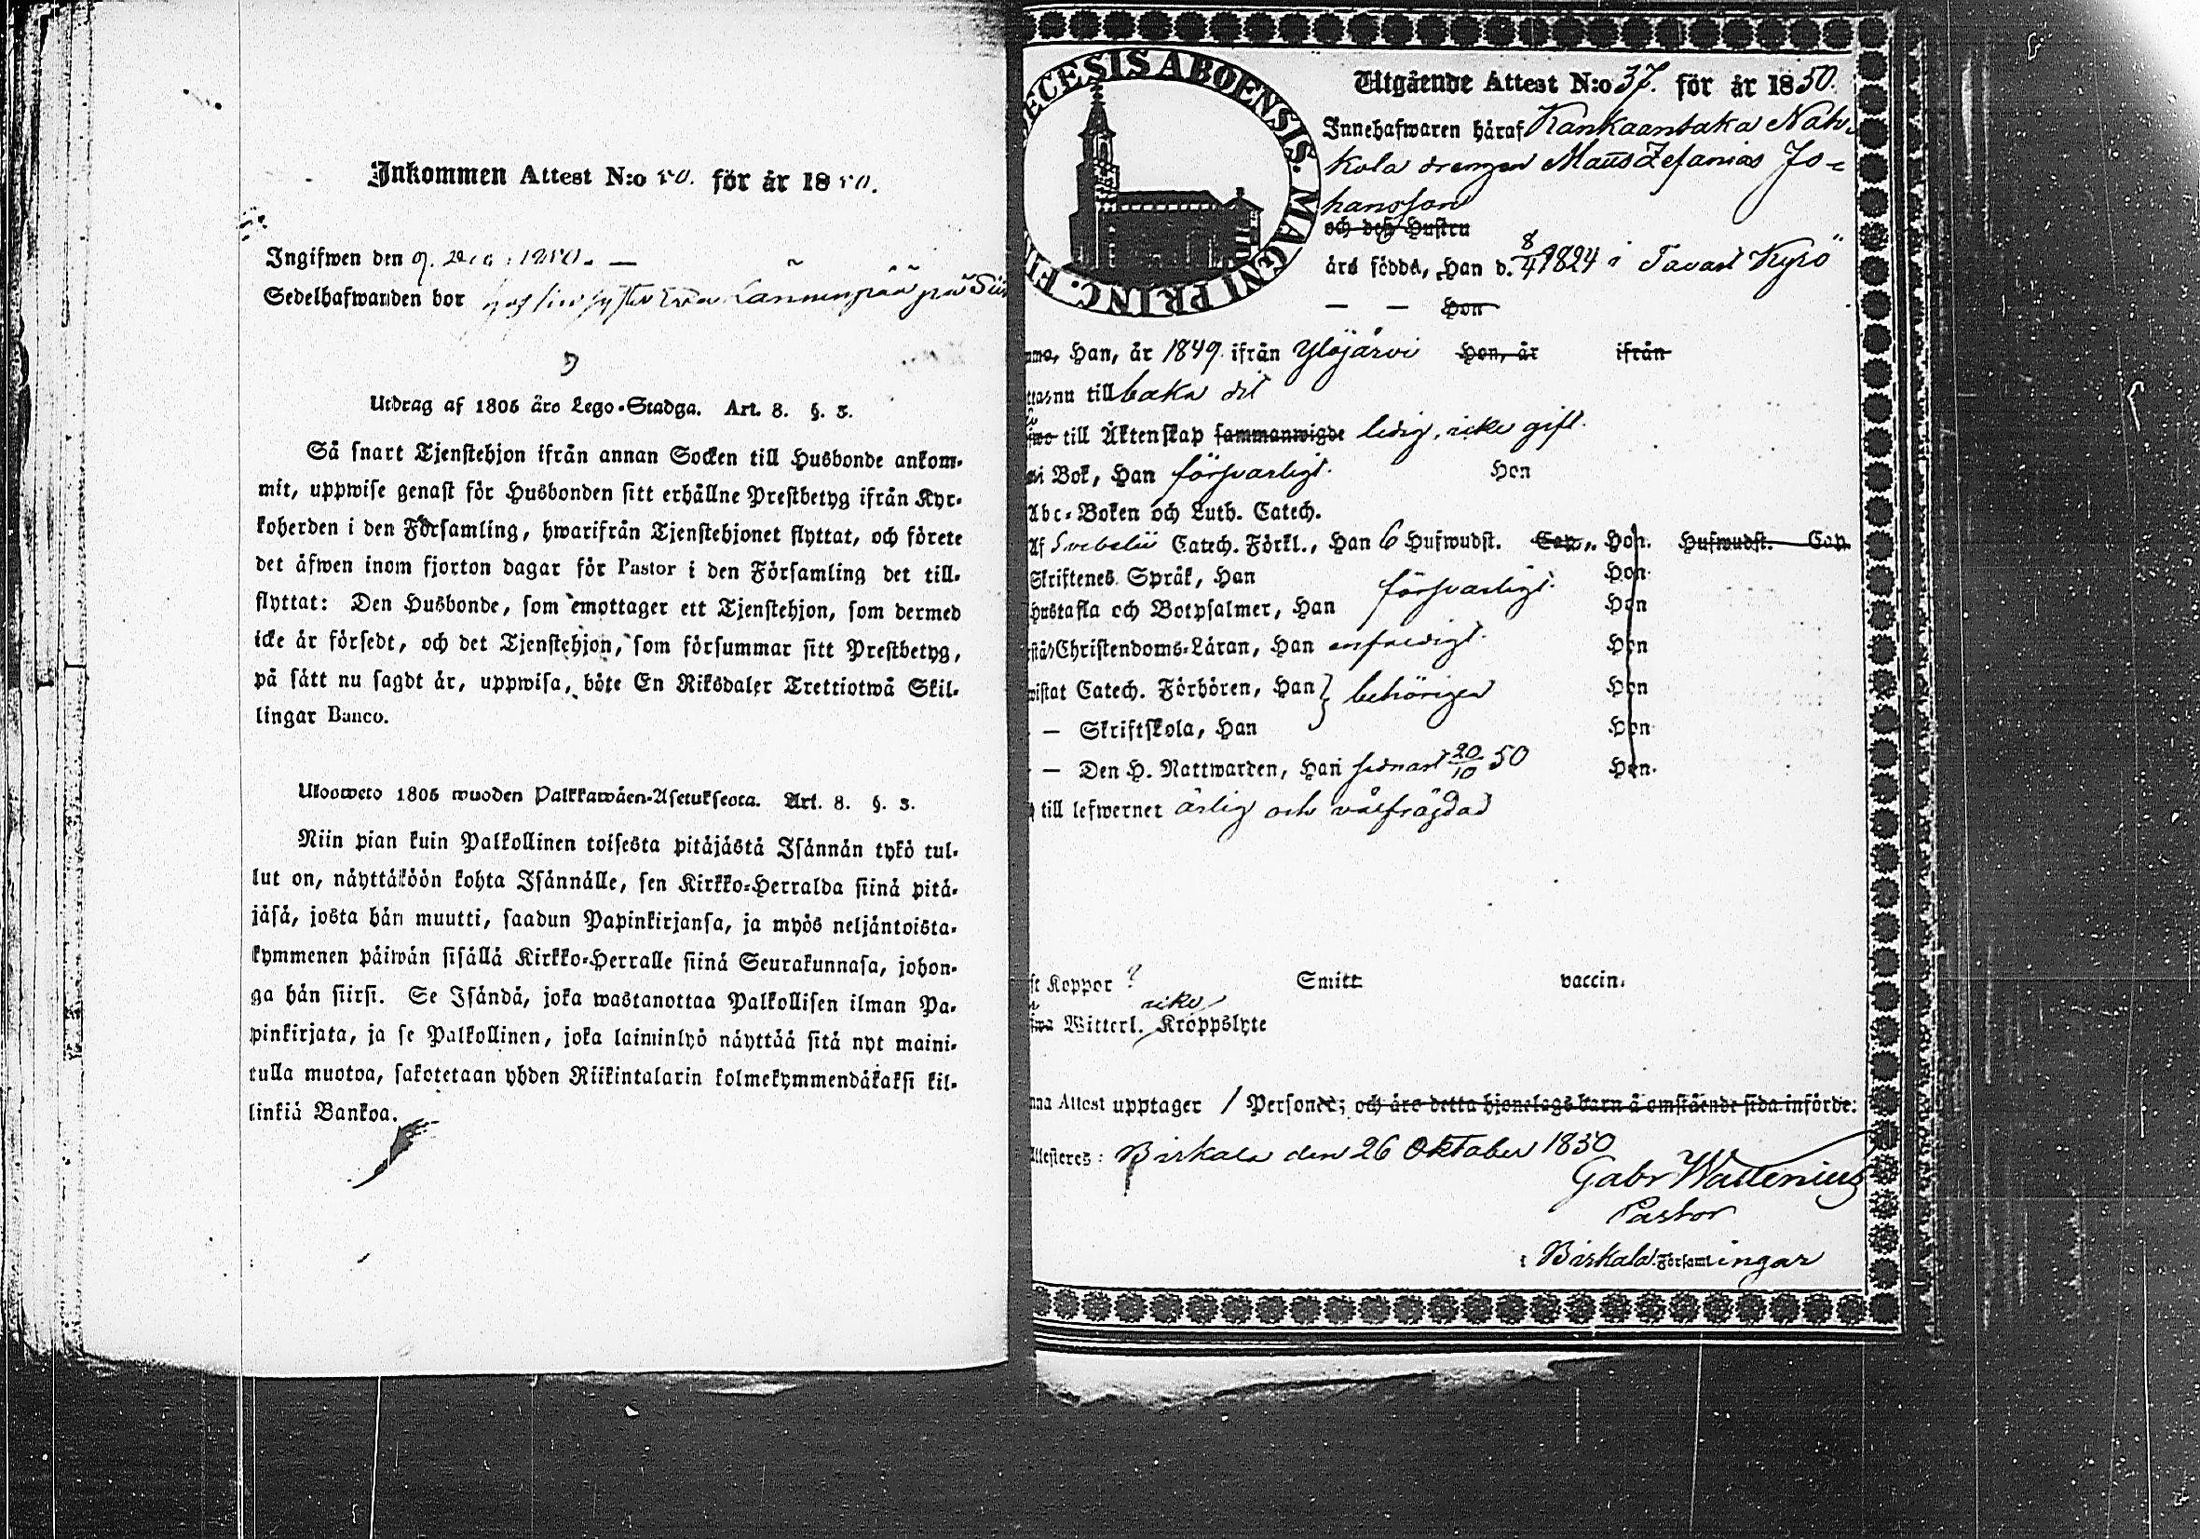 Inkommen Attest N:o 50. för år 1850.
Ingifwen den 9. Dec. 1850. —
Sedelhafwanden bor hos sin syster
Utdrag af 1805 års Lego-Stadga. Art. 8. §. 3.
Så snart Tjenstehjon ifrån annan Socken till Husbonde ankom-
mit, uppwise genast för Husbonden sitt erhållne Prestbetyg ifrån Kyr-
koherden i den Församling, hwarifrån Tjenstehjonet flyttat, och förete
det äfwen inom fjorton dagar för Pastor i den Församling det till-
flyttat: Den Husbonde, som emottager ett Tjenstehjon, som dermed
icke är försedt, och det Tjenstehjon, som försummar sitt Prestbetyg,
på sätt nu sagdt är, uppwisa, böte En Riksdaler Trettiotwå Skil-
lingar Banco.
Ulosweto 1805 wuoden Palkkawäen-Asetuksesta. Art. 8. §. 3.
Niin pian kuin Palkollinen toisesta pitäjästä Isännän tykö tul-
lut on, näyttäköön kohta Isännälle, sen Kirkko-Herralda siinä pitä-
jäsä, josta hän muutti, saadun Papinkirjansa, ja myös neljäntoista-
kymmenen päiwän sisällä Kirkko-Herralle siinä Seurakunnasa, johon-
ga hän siirsi. Se Isändä, joka wastanottaa Palkollisen ilman Pa-
pinkirjata, ja se Palkollinen, joka laiminlyö näyttää sitä nyt maini-
tulla muotoa, sakotetaan yhden Riikintalarin kolmekymmendäkaksi kil-
linkiä Bankoa.
ECESIS ABOENSIS. MAGNI PRINC. FI
Utgående Attest N:o 37. för år 1850.
Innehafwaren häraf Kankaantaka Nah-
kola drengen Matts Zefanias Jo-
hansson
och dess Hustru
äro födde, Han d. 8/4 1824 i Tavast Kyrö
— — Hon
Han, år 1849 ifrån Ylöjärvi Hon, år ifrån
nu till baka dit
till Äktenskap sammanwigde ledig, icke gift.
i Bok, Han försvarligt. Hon
Abc-Boken och Luth. Catech.
Af Svebelii Catech. Förkl., Han 6 Hufwudst. Cap., Hon. Hufwudst. Cap.
Skriftenes Språk, Han Hon
Hustafla och Botpsalmer, Han försvarligt. Hon
Christendoms-Läran, Han enfaldigt. Hon
wistat Catech. Förhören, Han behörigen Hon
— Skriftskola, Han Hon
— Den H. Nattwarden, Han sednast 20/10 50 Hon.
till lefwernet ärlig och välfrägdad
Koppor ? Smitt vaccin.
icke
Witterl. Kroppslyte
Attest upptager 1 Personer; och äro detta hjonelags barn å omstående sida införde.
Attesteres: Birkala den 26 Oktober 1850
Gabr Wallenius
Pastor
i Birkala Församlingar